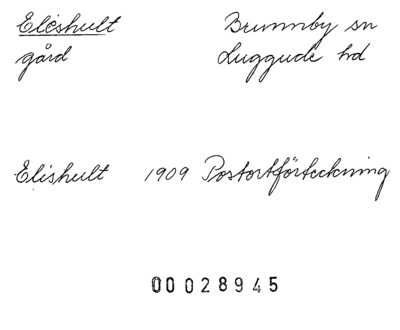 Eleshult Brunnby sn
gård Luggude hd
Elishult 1909 Postortförteckning
00028945